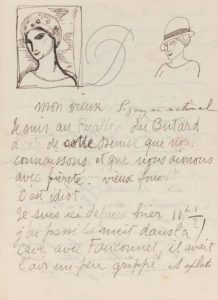 Mon vieux
Je suis au Pavillon du Butard
à côté de cette Seine que nous
connaissons et que nous aimons
avec fierté. vieux fou
C'est idiot.
Je suis ici depuis hier 11h
j'ai passé la nuit dans la
cave avec Fauconnet, il avait
l'air un peu grippé